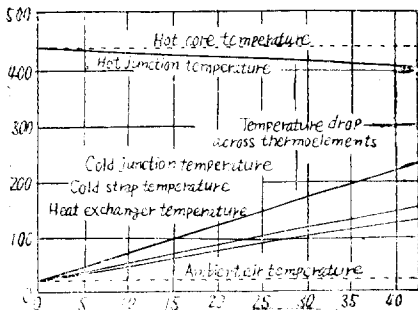 500
Hot core temperature
400
Hot junction temperature
300
Temperature drop
across thermoelements
Cold junction temperature
200
Cold strap temperature
Heat exchanger temperature
100
Ambient air temperature
0
0 5 10 15 20 25 30 35 40